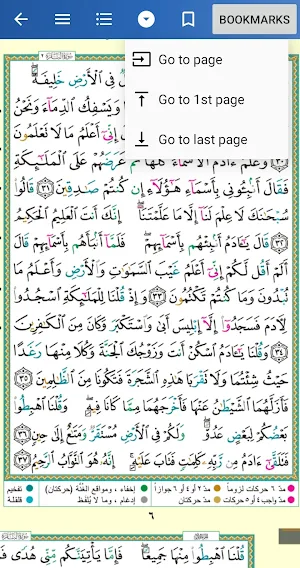 BOOKMARKS
Go to page
Go to 1st page
Go to last page
فِي ٱلۡأَرۡضِ خَلِيفَةٗۖ
وَيَسۡفِكُ ٱلدِّمَآءَ وَنَحۡنُ
إِنِّيٓ أَعۡلَمُ مَا لَا تَعۡلَمُونَ
٣٠ وَعَلَّمَ ءَادَمَ ٱلۡأَسۡمَآءَ كُلَّهَا ثُمَّ عَرَضَهُمۡ عَلَى ٱلۡمَلَٰٓئِكَةِ
فَقَالَ أَنۢبِـُٔونِي بِأَسۡمَآءِ هَٰٓؤُلَآءِ إِن كُنتُمۡ صَٰدِقِينَ ٣١ قَالُواْ
سُبۡحَٰنَكَ لَا عِلۡمَ لَنَآ إِلَّا مَا عَلَّمۡتَنَآۖ إِنَّكَ أَنتَ ٱلۡعَلِيمُ ٱلۡحَكِيمُ
٣٢ قَالَ يَٰٓـَٔادَمُ أَنۢبِئۡهُم بِأَسۡمَآئِهِمۡۖ فَلَمَّآ أَنۢبَأَهُم بِأَسۡمَآئِهِمۡ قَالَ
أَلَمۡ أَقُل لَّكُمۡ إِنِّيٓ أَعۡلَمُ غَيۡبَ ٱلسَّمَٰوَٰتِ وَٱلۡأَرۡضِ وَأَعۡلَمُ مَا
تُبۡدُونَ وَمَا كُنتُمۡ تَكۡتُمُونَ ٣٣ وَإِذۡ قُلۡنَا لِلۡمَلَٰٓئِكَةِ ٱسۡجُدُواْ
لِأٓدَمَ فَسَجَدُوٓاْ إِلَّآ إِبۡلِيسَ أَبَىٰ وَٱسۡتَكۡبَرَ وَكَانَ مِنَ ٱلۡكَٰفِرِينَ
٣٤ وَقُلۡنَا يَٰٓـَٔادَمُ ٱسۡكُنۡ أَنتَ وَزَوۡجُكَ ٱلۡجَنَّةَ وَكُلَا مِنۡهَا رَغَدًا
حَيۡثُ شِئۡتُمَا وَلَا تَقۡرَبَا هَٰذِهِ ٱلشَّجَرَةَ فَتَكُونَا مِنَ ٱلظَّٰلِمِينَ ٣٥
فَأَزَلَّهُمَا ٱلشَّيۡطَٰنُ عَنۡهَا فَأَخۡرَجَهُمَا مِمَّا كَانَا فِيهِۖ وَقُلۡنَا ٱهۡبِطُواْ
بَعۡضُكُمۡ لِبَعۡضٍ عَدُوّٞۖ وَلَكُمۡ فِي ٱلۡأَرۡضِ مُسۡتَقَرّٞ وَمَتَٰعٌ إِلَىٰ حِينٖ ٣٦
فَتَلَقَّىٰٓ ءَادَمُ مِن رَّبِّهِۦ كَلِمَٰتٖ فَتَابَ عَلَيۡهِۚ إِنَّهُۥ هُوَ ٱلتَّوَّابُ ٱلرَّحِيمُ ٣٧
مدّ ٦ حركات لزوماً مدّ ٢ أو ٤ أو ٦ جوازاً إخفاء، ومواقع الغُنَّة (حركتان) تفخيم
مدّ واجب ٤ أو ٥ حركات مدّ حركتان إدغام، وما لا يُلفَظ قلقلة
٦
قُلۡنَا ٱهۡبِطُواْ مِنۡهَا جَمِيعٗاۖ فَإِمَّا يَأۡتِيَنَّكُم مِّنِّي هُدٗى